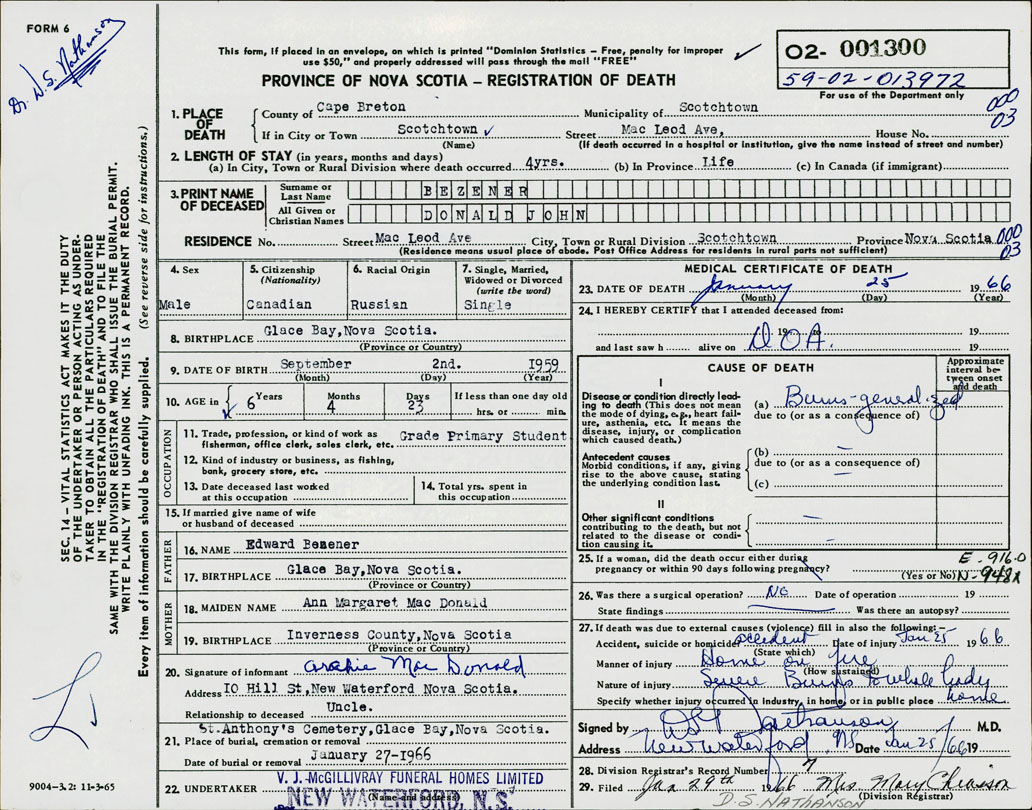 FORM 6
Dr. N. S. Nathanson
This form, if placed in an envelope, on which is printed "Dominion Statistics – Free, penalty for improper
use $50," and properly addressed will pass through the mail "FREE"
PROVINCE OF NOVA SCOTIA – REGISTRATION OF DEATH
O2- 001300
59-02-013972
For use of the Department only
000
03
1. PLACE OF DEATH
County of Cape Breton Municipality of Scotchtown
If in City or Town Scotchtown Street Mac Leod Ave, House No.
(Name) (If death occurred in a hospital or institution, give the name instead of street and number)
2. LENGTH OF STAY (in years, months and days)
(a) In City, Town or Rural Division where death occurred 4yrs. (b) In Province Life (c) In Canada (if immigrant)
3. PRINT NAME OF DECEASED
Surname or Last Name BEZENER
All Given or Christian Names DONALD JOHN
RESIDENCE No. Street Mac Leod Ave City, Town or Rural Division Scotchtown Province Nova Scotia
000
03
(Residence means usual place of abode. Post Office Address for residents in rural parts not sufficient)
4. Sex
Male
5. Citizenship
(Nationality)
Canadian
6. Racial Origin
Russian
7. Single, Married,
Widowed or Divorced
(write the word)
Single
8. BIRTHPLACE Glace Bay,Nova Scotia.
(Province or Country)
9. DATE OF BIRTH September 2nd. 1959
(Month) (Day) (Year)
10. AGE in
Years Months Days If less than one day old
6 4 23 hrs. or min.
OCCUPATION
11. Trade, profession, or kind of work as
fisherman, office clerk, sales clerk, etc. Grade Primary Student
12. Kind of industry or business, as fishing,
bank, grocery store, etc.
13. Date deceased last worked
at this occupation
14. Total yrs. spent in
this occupation
15. If married give name of wife
or husband of deceased
FATHER
16. NAME Edward Bezener
17. BIRTHPLACE Glace Bay,Nova Scotia.
(Province or Country)
MOTHER
18. MAIDEN NAME Ann Margaret Mac Donald
19. BIRTHPLACE Inverness County,Nova Scotia
(Province or Country)
20. Signature of informant Archie Mac Donald
Address IO Hill St,New Waterford Nova Scotia.
Relationship to deceased Uncle.
St.Anthony's Cemetery,Glace Bay,Nova Scotia.
21. Place of burial, cremation or removal
Date of burial or removal January 27-1966
22. UNDERTAKER V. J. McGILLIVRAY FUNERAL HOMES LIMITED
NEW WATERFORD, N.S.
(Name and address)
MEDICAL CERTIFICATE OF DEATH
23. DATE OF DEATH January 25 1966
(Month) (Day) (Year)
24. I HEREBY CERTIFY that I attended deceased from:
19 to 19
and last saw h alive on D O A. 19
CAUSE OF DEATH
Approximate
interval be-
tween onset
and death
I
Disease or condition directly lead-
ing to death (This does not mean
the mode of dying, e.g., heart fail-
ure, asthenia, etc. It means the
disease, injury, or complication
which caused death.)
(a) Burns-generalized
due to (or as a consequence of)
Antecedent causes
Morbid conditions, if any, giving
rise to the above cause, stating
the underlying condition last.
(b) —
due to (or as a consequence of)
(c) —
II
Other significant conditions
contributing to the death, but not
related to the disease or condi-
tion causing it.
25. If a woman, did the death occur either during
pregnancy or within 90 days following pregnancy?
(Yes or No)
E-916.0
N-948x
26. Was there a surgical operation? NO Date of operation 19
State findings Was there an autopsy?
27. If death was due to external causes (violence) fill in also the following:–
Accident, suicide or homicide accident Date of injury Jan 25 1966
(State which)
Manner of injury Home on fire
(How sustained)
Nature of injury Severe Burns to whole body
Specify whether injury occurred in industry, in home, or in public place home
Signed by NS Nathanson M.D.
Address New Waterford NS Date Jan 25/66 19
28. Division Registrar's Record Number 7
29. Filed Jan 29th 1966 Mrs Mary Chiasson
(Division Registrar)
D.S. NATHANSON
SEC. 14 – VITAL STATISTICS ACT MAKES IT THE DUTY
OF THE UNDERTAKER OR PERSON ACTING AS UNDER-
TAKER TO OBTAIN ALL THE PARTICULARS REQUIRED
IN THE "REGISTRATION OF DEATH" AND TO FILE THE
SAME WITH THE DIVISION REGISTRAR WHO SHALL ISSUE THE BURIAL PERMIT.
WRITE PLAINLY WITH UNFADING INK. THIS IS A PERMANENT RECORD.
Every item of information should be carefully supplied. (See reverse side for instructions.)
9004–3.2: 11-3-65